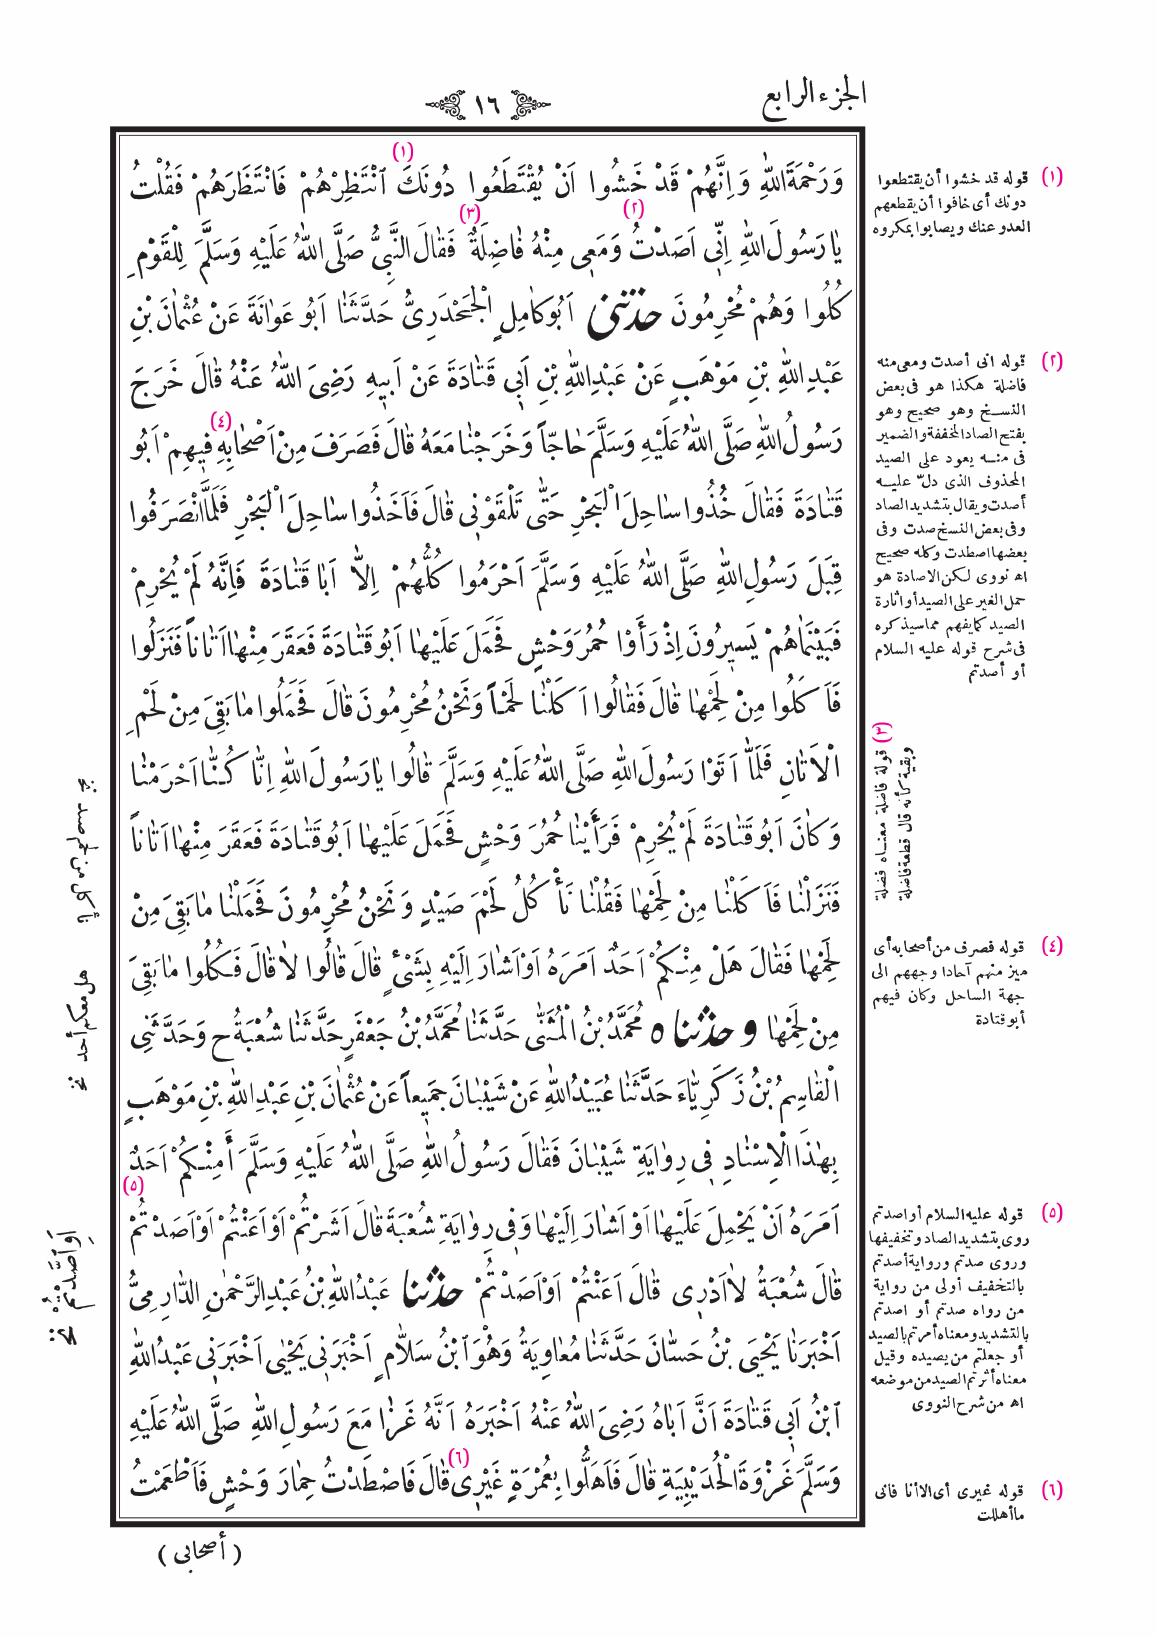 الجزء الرابع
١٦
وَرَحْمَةَ اللّٰهِ وَاِنَّهُمْ قَدْ خَشُوا اَنْ يُقْتَطَعُوا دُونَكَ (١) اَنْتَظِرْهُمْ فَانْتَظَرَهُمْ فَقُلْتُ
يَا رَسُولَ اللّٰهِ اِنّٖى اَصَدْتُ (٢) وَمَعٖى مِنْهُ فَاضِلَةٌ (٣) فَقَالَ النَّبِىُّ صَلَّى اللّٰهُ عَلَيْهِ وَسَلَّمَ لِلْقَوْمِ
كُلُوا وَهُمْ مُحْرِمُونَ حدّثنى اَبُوكَامِلٍ الْجَحْدَرِىُّ حَدَّثَنَا اَبُو عَوَانَةَ عَنْ عُثْمَانَ بْنِ
عَبْدِ اللّٰهِ بْنِ مَوْهَبٍ عَنْ عَبْدِ اللّٰهِ بْنِ اَبٖى قَتَادَةَ عَنْ اَبٖيهِ رَضِىَ اللّٰهُ عَنْهُ قَالَ خَرَجَ
رَسُولُ اللّٰهِ صَلَّى اللّٰهُ عَلَيْهِ وَسَلَّمَ حَاجّاً وَخَرَجْنَا مَعَهُ قَالَ فَصَرَفَ مِنْ اَصْحَابِهٖ (٤) فٖيهِمْ اَبُو
قَتَادَةَ فَقَالَ خُذُوا سَاحِلَ الْبَحْرِ حَتّٰى تَلْقَوْنٖى قَالَ فَاَخَذُوا سَاحِلَ الْبَحْرِ فَلَمَّا انْصَرَفُوا
قِبَلَ رَسُولِ اللّٰهِ صَلَّى اللّٰهُ عَلَيْهِ وَسَلَّمَ اَحْرَمُوا كُلُّهُمْ اِلَّا اَبَا قَتَادَةَ فَاِنَّهُ لَمْ يُحْرِمْ
فَبَيْنَمَا هُمْ يَسٖيرُونَ اِذْ رَأَوْا حُمُرَ وَحْشٍ فَحَمَلَ عَلَيْهَا اَبُوقَتَادَةَ فَعَقَرَ مِنْهَا اَتَاناً فَنَزَلُوا
فَاَكَلُوا مِنْ لَحْمِهَا قَالَ فَقَالُوا اَكَلْنَا لَحْماً وَنَحْنُ مُحْرِمُونَ قَالَ فَحَمَلُوا مَا بَقِىَ مِنْ لَحْمِ
الْاَتَانِ فَلَمَّا اَتَوْا رَسُولَ اللّٰهِ صَلَّى اللّٰهُ عَلَيْهِ وَسَلَّمَ قَالُوا يَا رَسُولَ اللّٰهِ اِنَّا كُنَّا اَحْرَمْنَا
وَكَانَ اَبُوقَتَادَةَ لَمْ يُحْرِمْ فَرَأَيْنَا حُمُرَ وَحْشٍ فَحَمَلَ عَلَيْهَا اَبُوقَتَادَةَ فَعَقَرَ مِنْهَا اَتَاناً
فَنَزَلْنَا فَاَكَلْنَا مِنْ لَحْمِهَا فَقُلْنَا نَأْكُلُ لَحْمَ صَيْدٍ وَنَحْنُ مُحْرِمُونَ فَحَمَلْنَا مَا بَقِىَ مِنْ
لَحْمِهَا فَقَالَ هَلْ مِنْكُمْ اَحَدٌ اَمَرَهُ اَوْ اَشَارَ اِلَيْهِ بِشَىْءٍ قَالَ قَالُوا لَا قَالَ فَكُلُوا مَا بَقِىَ
مِنْ لَحْمِهَا و حدّثنا ه مُحَمَّدُ بْنُ الْمُثَنّٰى حَدَّثَنَا مُحَمَّدُ بْنُ جَعْفَرٍ حَدَّثَنَا شُعْبَةُ ح وَحَدَّثَنِى
الْقَاسِمُ بْنُ زَكَرِيَّاءَ حَدَّثَنَا عُبَيْدُ اللّٰهِ عَنْ شَيْبَانَ جَمٖيعاً عَنْ عُثْمَانَ بْنِ عَبْدِ اللّٰهِ بْنِ مَوْهَبٍ
بِهٰذَا الْاِسْنَادِ فٖى رِوَايَةِ شَيْبَانَ فَقَالَ رَسُولُ اللّٰهِ صَلَّى اللّٰهُ عَلَيْهِ وَسَلَّمَ أَمِنْكُمْ اَحَدٌ
اَمَرَهُ اَنْ يَحْمِلَ عَلَيْهَا اَوْ اَشَارَ اِلَيْهَا وَفٖى رِوَايَةِ شُعْبَةَ قَالَ اَشَرْتُمْ اَوْ اَعَنْتُمْ اَوْ اَصَدْتُمْ (٥)
قَالَ شُعْبَةُ لَا اَدْرٖى قَالَ اَعَنْتُمْ اَوْ اَصَدْتُمْ حدّثنا عَبْدُ اللّٰهِ بْنُ عَبْدِ الرَّحْمٰنِ الدَّارِمِىُّ
اَخْبَرَنَا يَحْيَى بْنُ حَسَّانَ حَدَّثَنَا مُعَاوِيَةُ وَهُوَ ابْنُ سَلَّامٍ اَخْبَرَنٖى يَحْيٰى اَخْبَرَنٖى عَبْدُ اللّٰهِ
ابْنُ اَبٖى قَتَادَةَ اَنَّ اَبَاهُ رَضِىَ اللّٰهُ عَنْهُ اَخْبَرَهُ اَنَّهُ غَزَا مَعَ رَسُولِ اللّٰهِ صَلَّى اللّٰهُ عَلَيْهِ
وَسَلَّمَ غَزْوَةَ الْحُدَيْبِيَةِ قَالَ فَاَهَلُّوا بِعُمْرَةٍ غَيْرٖى (٦) قَالَ فَاصْطَدْتُ حِمَارَ وَحْشٍ فَاَطْعَمْتُ
( أصحابى )
(١) قوله قد خشوا أن يقتطعوا
دونك أى خافوا أن يقطعهم
العدو عنك ويصابوا بمكروه
(٢) قوله انى أصدت ومعى منه
فاضلة هكذا هو فى بعض
النسخ وهو صحيح وهو
بفتح الصاد المخففة والضمير
فى منه يعود على الصيد
المحذوف الذى دلّ عليه
أصدت ويقال بتشديد الصاد
وفى بعض النسخ صدت وفى
بعضها اصطدت وكله صحيح
اه نووى لكن الاصادة هو
حمل الغير على الصيد أو اثارة
الصيد كما يفهم مما سيذكره
فى شرح قوله عليه السلام
أو أصدتم
(٣) قوله فاضلة معناه فضلة
وبقية كأنه قال قطعة فاضلة
(٤) قوله فصرف من أصحابه أى
ميز منهم آحادا وجههم الى
جهة الساحل وكان فيهم
أبوقتادة
(٥) قوله عليه السلام أو اصدتم
روى بتشديد الصاد وتخفيفها
وروى صدتم ورواية أصدتم
بالتخفيف أولى من رواية
من رواه صدتم أو اصدتم
بالتشديد ومعناه أمرتم بالصيد
أو جعلتم من يصيده وقيل
معناه أثرتم الصيد من موضعه
اه من شرح النووى
(٦) قوله غيرى أى الا أنا فانى
ما أهللت
نأكل من لحم صيد نخ
هل معكم أحد نخ
اَوْ اصَّدْتُمْ نخ